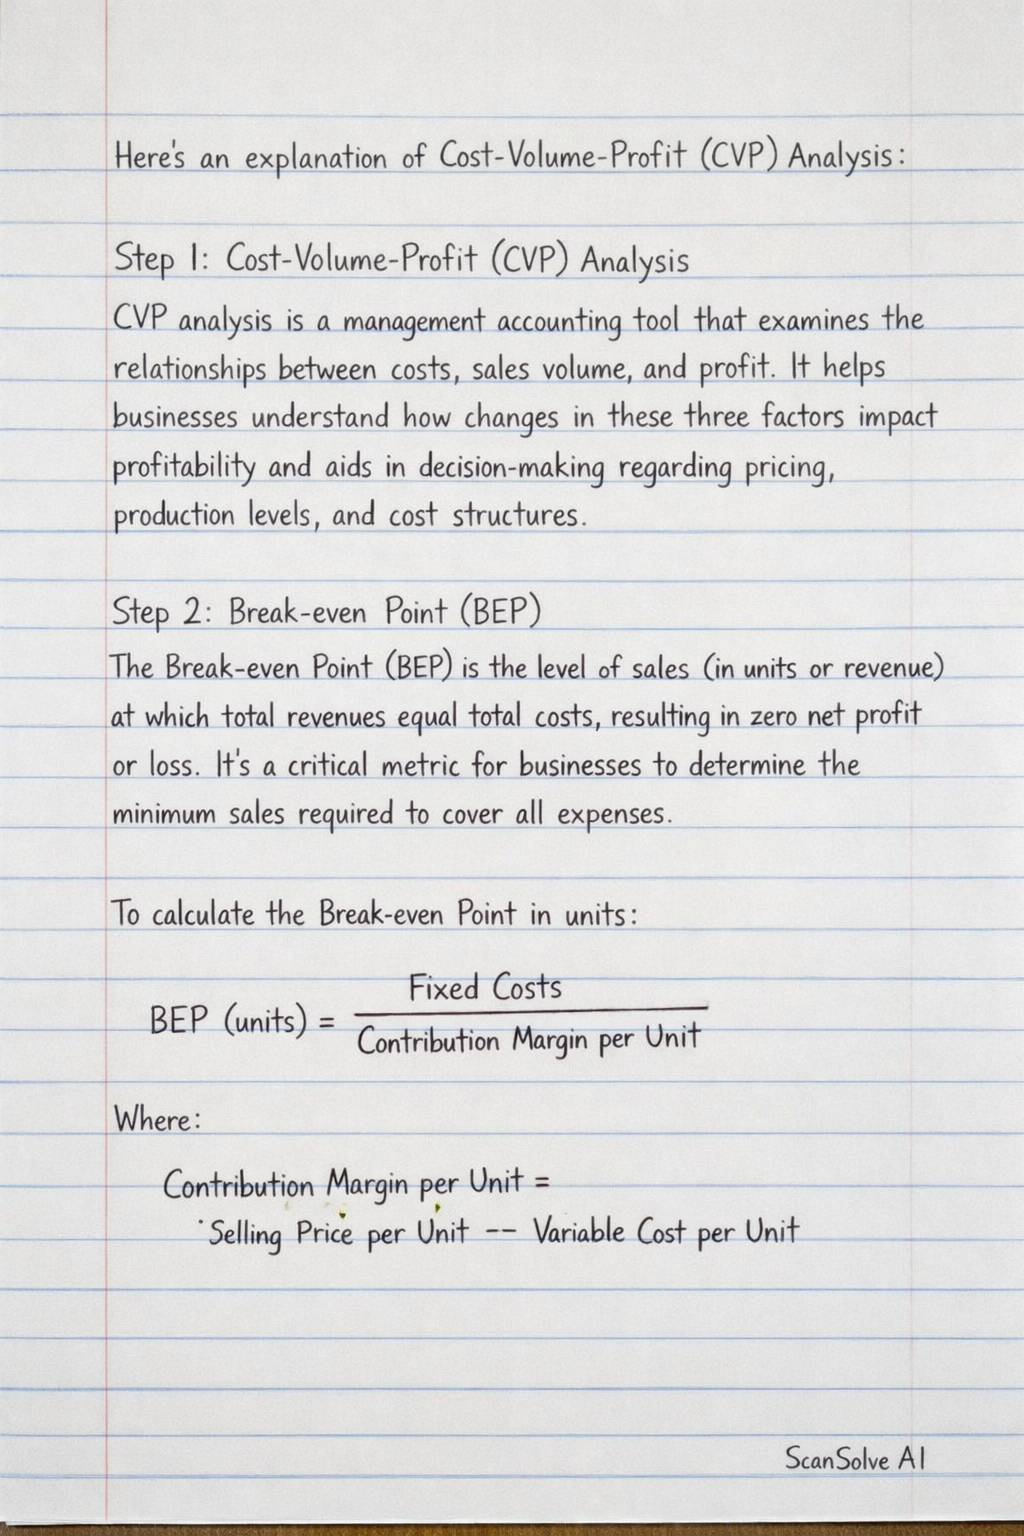 Here's an explanation of Cost-Volume-Profit (CVP) Analysis:
Step 1: Cost-Volume-Profit (CVP) Analysis
CVP analysis is a management accounting tool that examines the
relationships between costs, sales volume, and profit. It helps
businesses understand how changes in these three factors impact
profitability and aids in decision-making regarding pricing,
production levels, and cost structures.
Step 2: Break-even Point (BEP)
The Break-even Point (BEP) is the level of sales (in units or revenue)
at which total revenues equal total costs, resulting in zero net profit
or loss. It's a critical metric for businesses to determine the
minimum sales required to cover all expenses.
To calculate the Break-even Point in units:
Fixed Costs
BEP (units) =
Contribution Margin per Unit
Where:
Contribution Margin per Unit =
Selling Price per Unit -- Variable Cost per Unit
ScanSolve AI